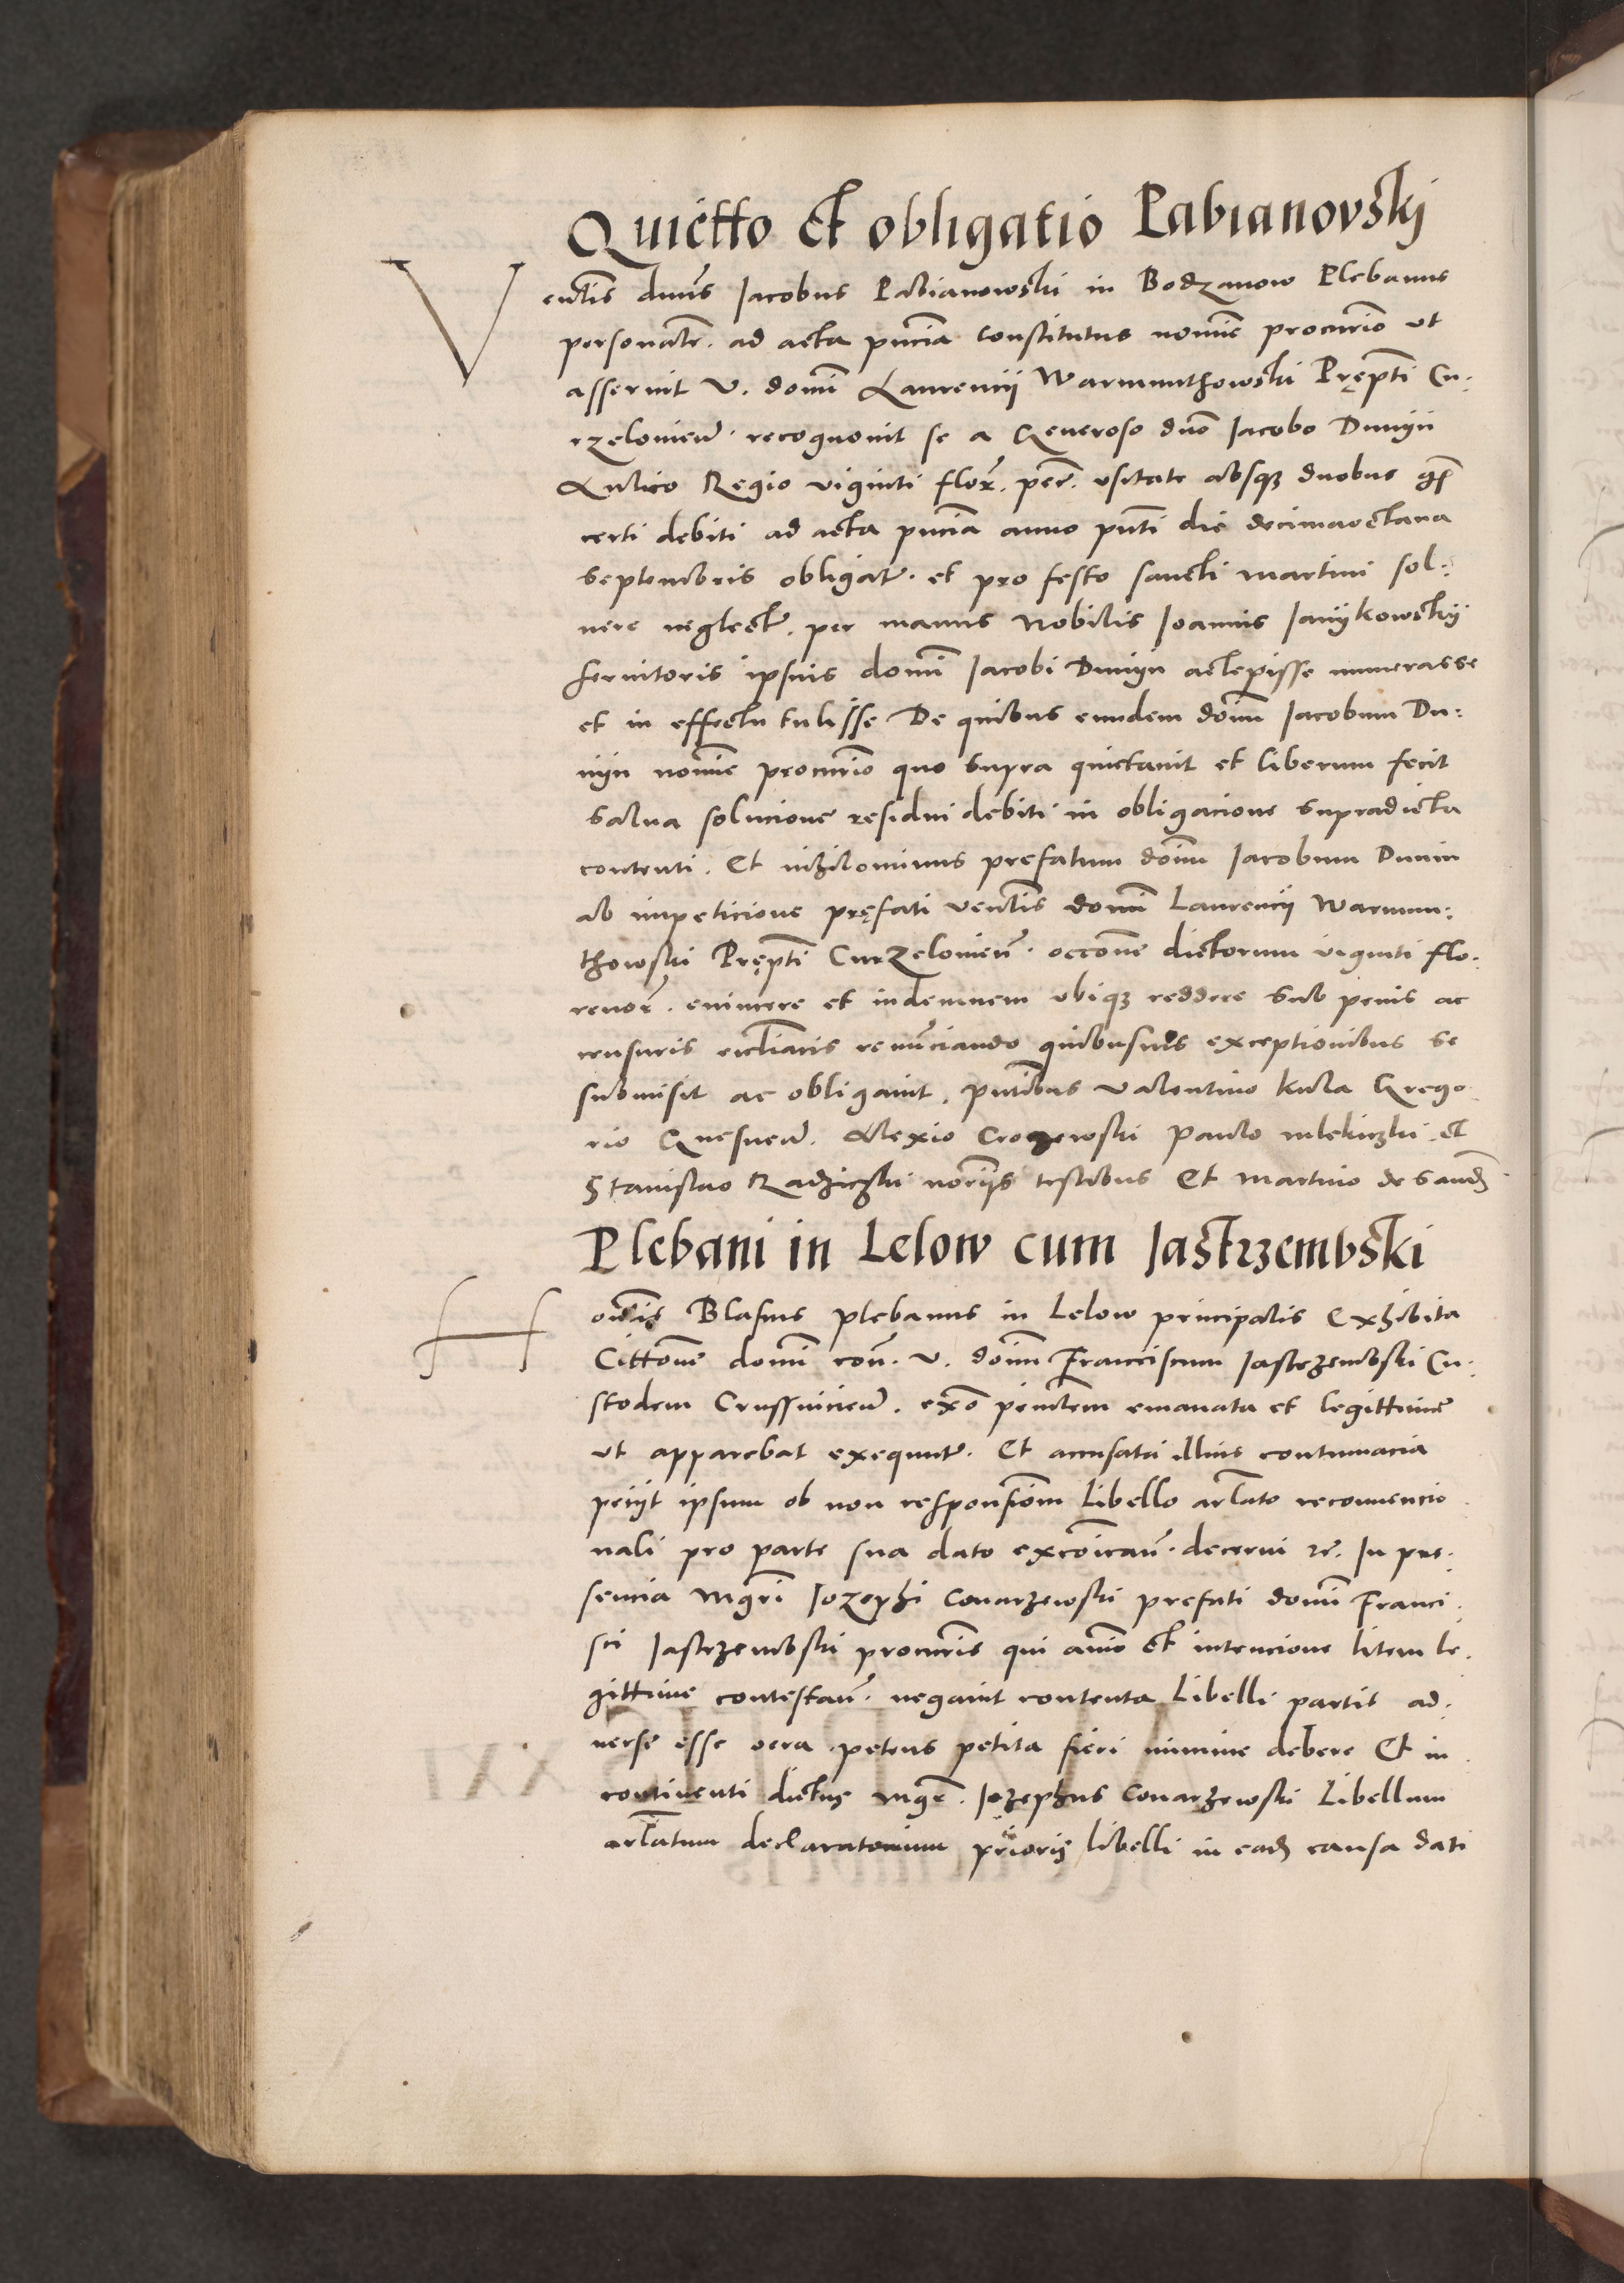 Quietto et obligatio Pabianovski
Venlis dnus Jacobus Pabianowski in Bodzanow Plebanus
personalr. ad acta pncia constitutus nomie procurio ut
asseruit V. domi Laurencii Warmunthowski Prępti Cu:
rzelovien. recognovit se a Generoso dno Jacobo Duniin
Aulico Regio viginti flor. pec. usitate absq duobus gs
certi debiti ad acta pncia anno pnti die decimaoctava
Septembris obligat. et pro festo sancti martini sol:
vere neglect. per manus Nobilis Joannis Janijkowskij
servitoris ipsius domi Jacobi Duniin accepisse numerasse
et in effectu tulisse De quibus eundem domi Jacobum Du:
nijn nomie procurio quo supra quietavit et liberum fecit
salva solucione residui debiti in obligacione supradicta
contenti. Et nihilominus prefatum domi Jacobum Dunin
ab impeticione pręfati venlis domi Laurencii Warmun:
thowski Prępti Curzelovien. occone dictorum viginti flo:
renor. evincere et indemnem ubiq reddere sub penis ac
censuris eccliacis renunciando quibusuis exceptionibus se
submisit ac obligavit. pntibus Valentino Kula Grego
rio Gnesnen. Alexio Croczewski Paulo mlekiczki et
Stanislao Radziczki noriis testibus Et Martino de Sand
Plebani in Lelow cum Jastrzembski
Honlis Blasius plebanus in Lelow principalis Exhibita
Cittone domi con. V. domi Franciscum Jastrzembski Cu:
stodem Crussvicien. exo penitem emanata et legittime
ut apparebat exequut. Et accusata illius contumacia
petijt ipsum ob non responsiom Libello arlato reconvencio
nali pro parte sua dato excoican. decerni rc. In pre:
sencia Mgri Jozephi Covarzewski prefati domi Franci:
sci Jastrzembski procuris qui aio et intencione litem le:
gittime contestan. negavit contenta Libelli partis ad:
verse esse vera petens petita fieri minime debere Et in
continenti dictus mgr. Jozephus Covarzewski Libellum
arlatum declaratorium prioris libelli in ead causa dati